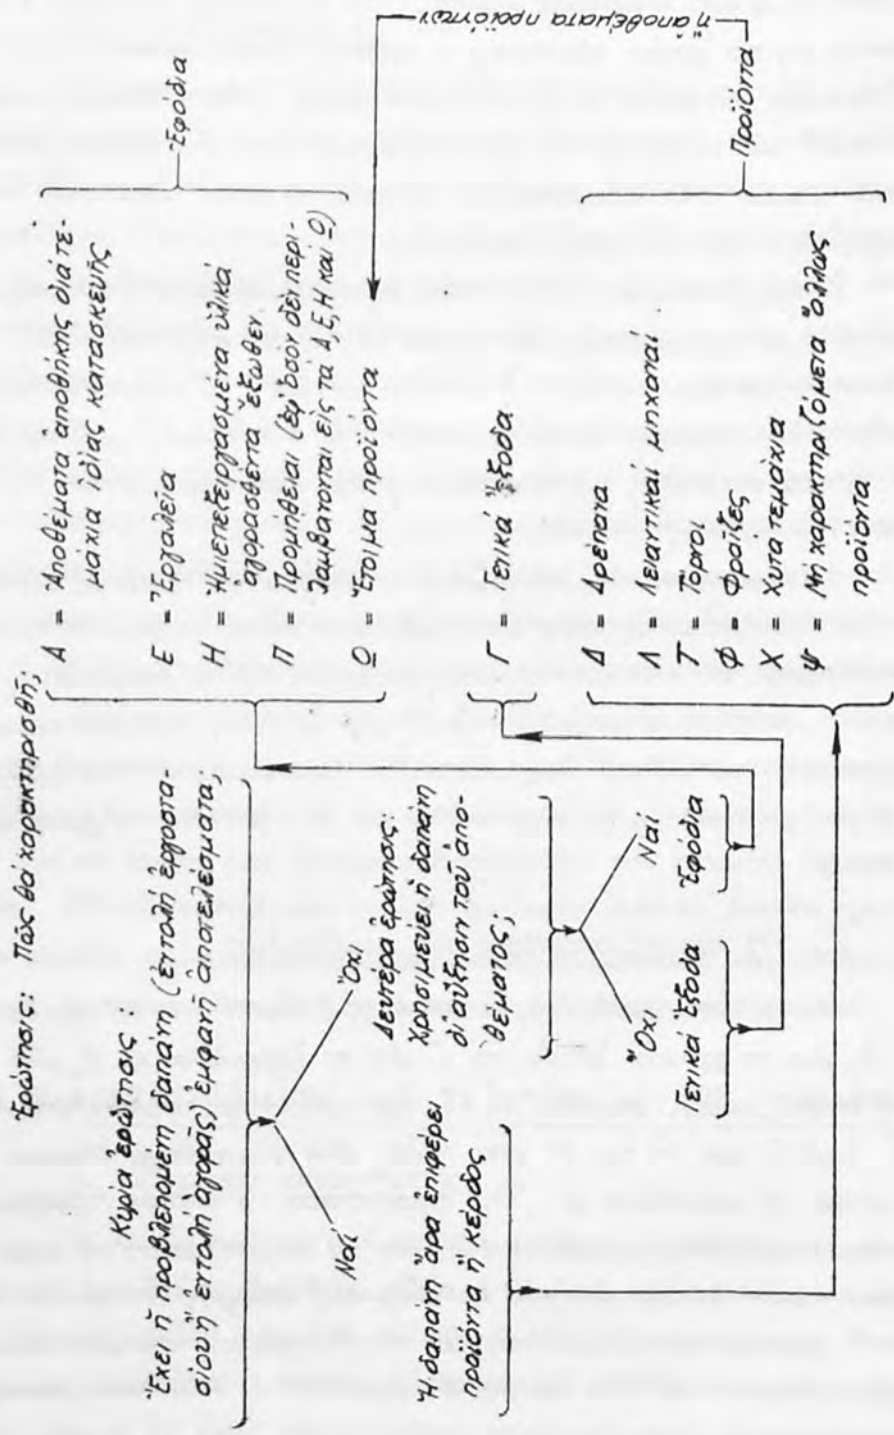 Ἐρώτησις: Πῶς θά χαρακτηρισθῇ;
Κυρία ἐρώτησις
Ἔχει ἡ προβλεπομένη δαπάνη (ἐντολή ἐργοστα-
σίου ἤ ἐντολή ἀγορᾶς) ἐμφανῆ ἀποτελέσματα;
Ναί
Ὄχι
Ἡ δαπάνη ἄρα ἐπιφέρει
προϊόντα ἤ κέρδος
Δευτέρα ἐρώτησις.
Χρησιμεύει ἡ δαπάνη
δι' αὔξησιν τοῦ ἀπο-
θέματος;
Ὄχι
Ναί
Γενικά Ἔξοδα
Ἐφόδια
Α = Ἀποθέματα ἀποθήκης διά τε-
μάχια ἰδίας κατασκευῆς
Ε = Ἐργαλεῖα
Η = Ἡμιεπεξεργασμένα ὑλικά
ἀγορασθέντα ἔξωθεν
Π = Προμήθειαι (ἐφ' ὅσον δέν περι-
λαμβάνονται εἰς τά Α, Ε, Η καί Ο)
Ο = Ἕτοιμα προϊόντα
Γ = Γενικά Ἔξοδα
Δ = Δρέπανα
Λ = Λειαντικαί μηχαναί
Τ = Τόρνοι
Φ = Φραῖζες
Χ = Χυτά τεμάχια
Ψ = Μή χαρακτηριζόμενα ἄλλως
προϊόντα
Ἐφόδια
Προϊόντα
ἤ ἀποθέματα προϊόντων